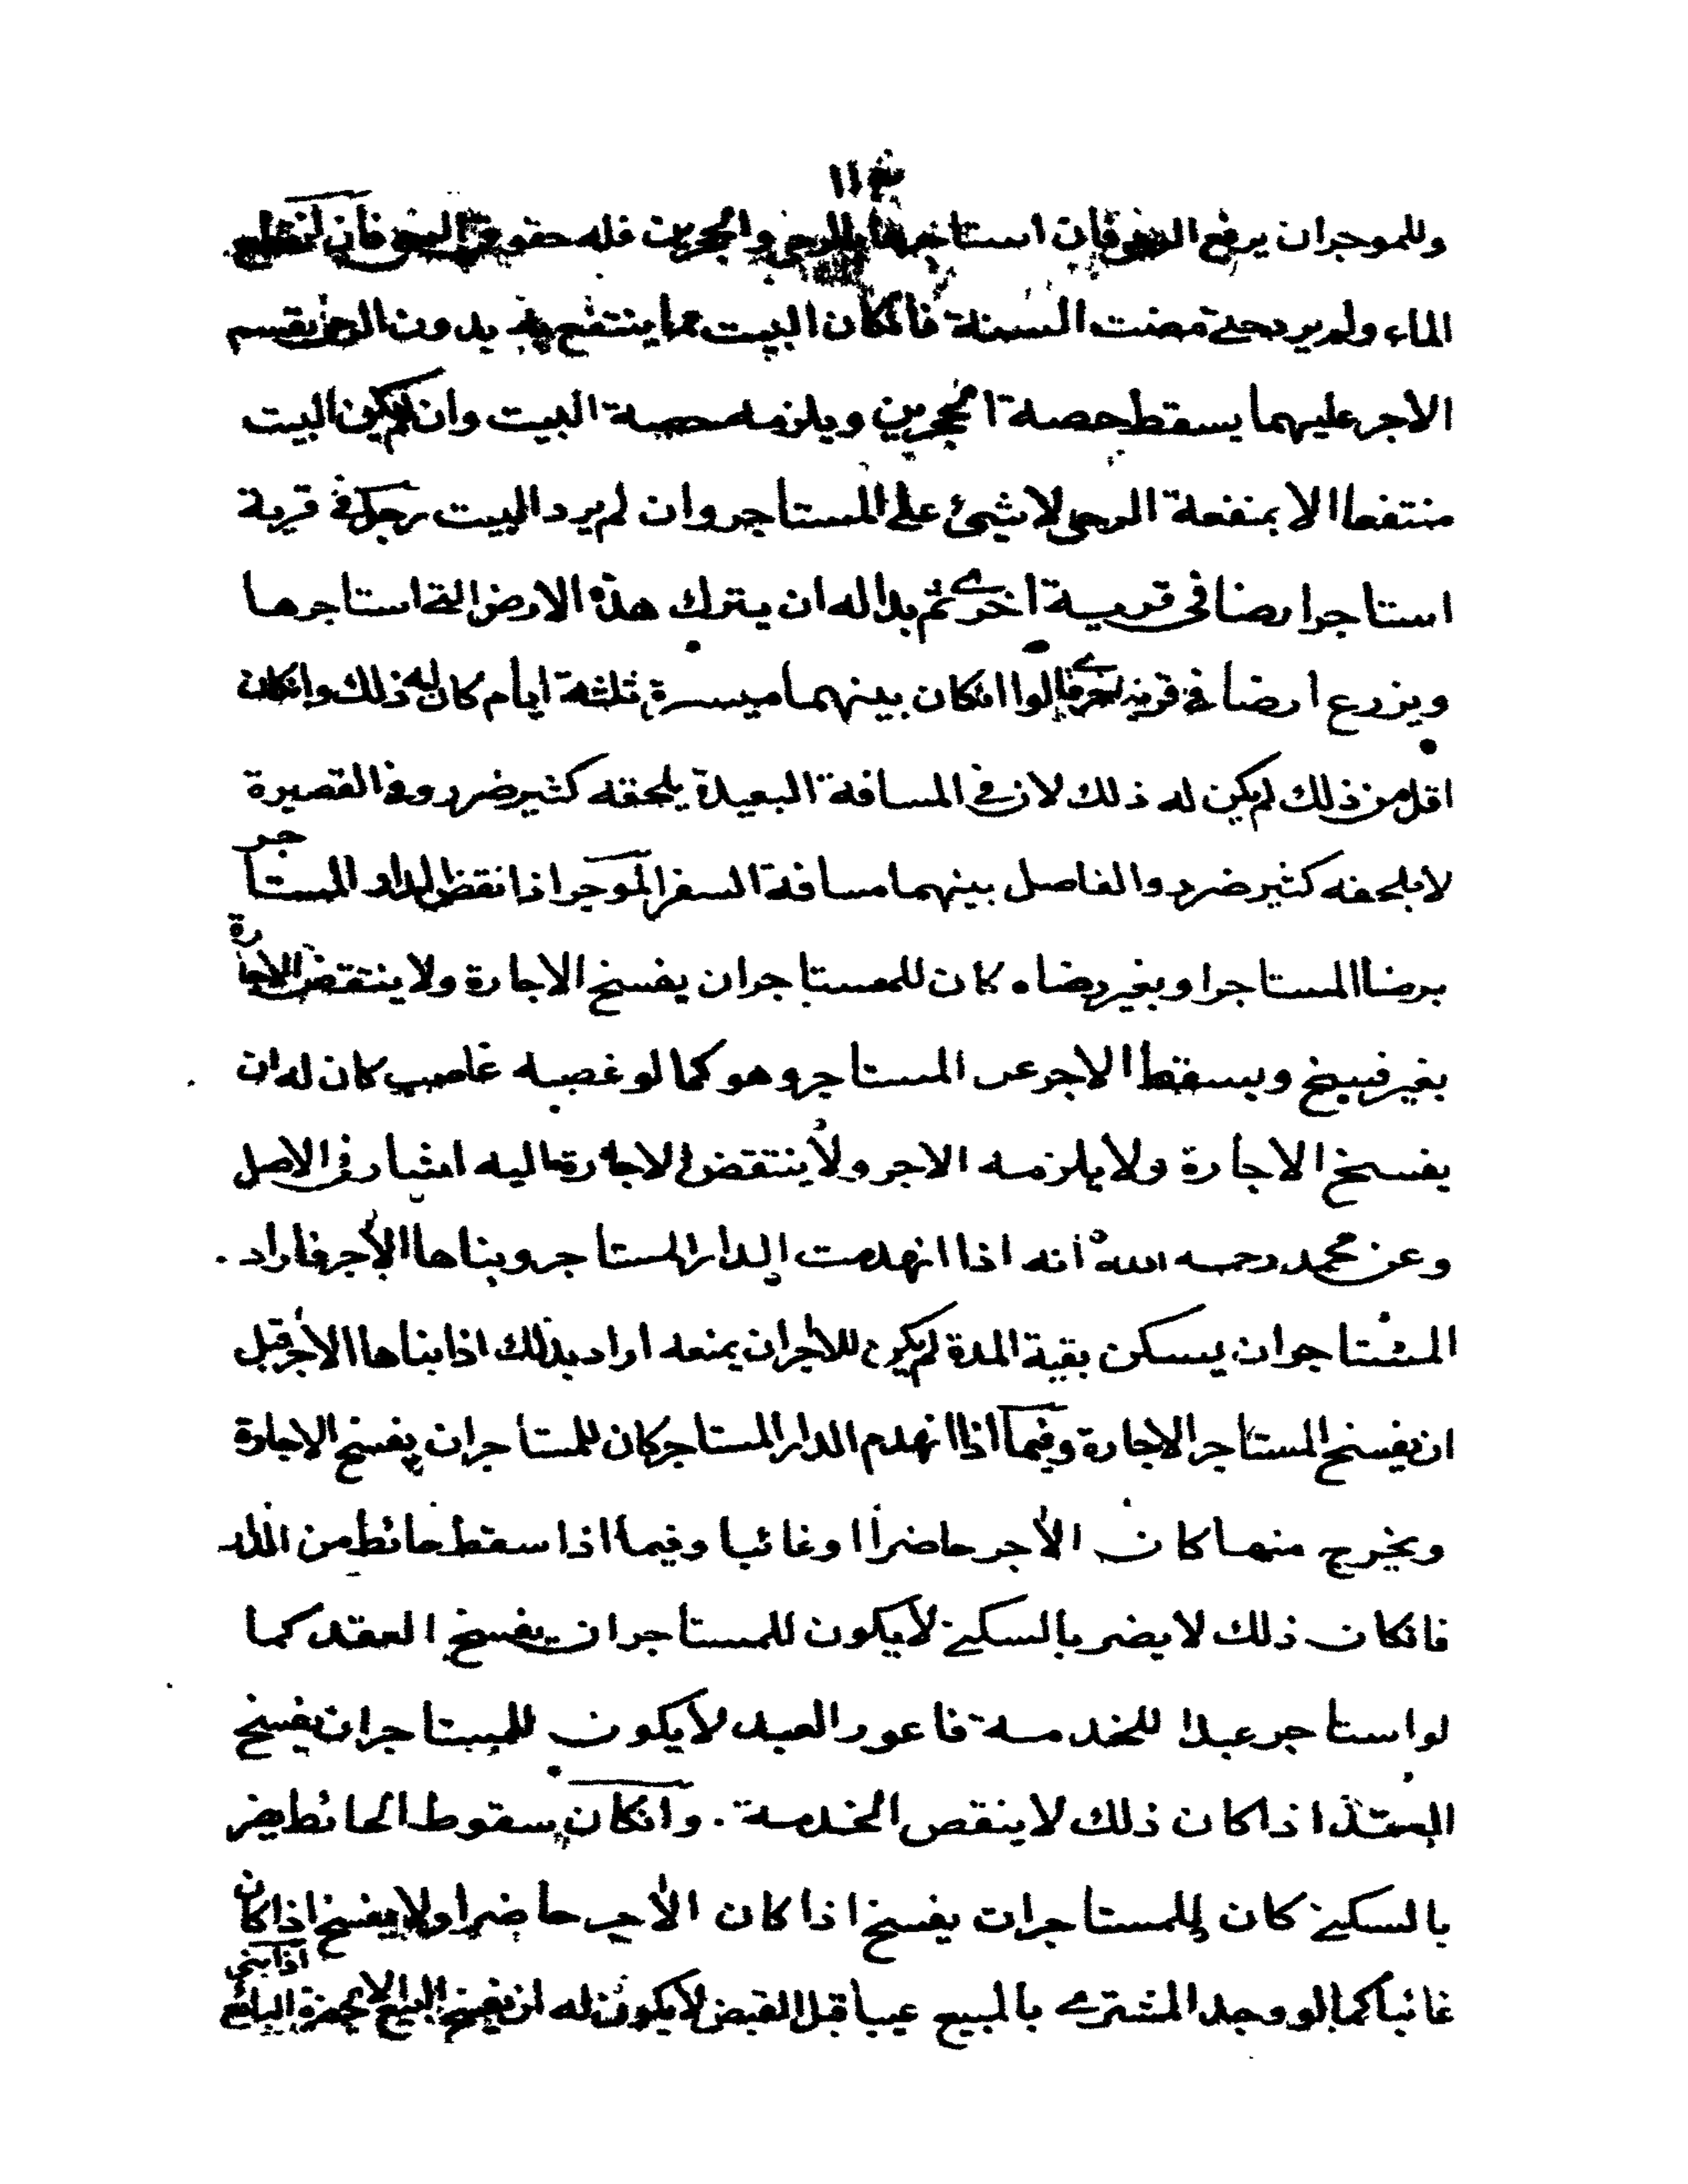 ١١٣
وللموجر ان يرفع الرحى فان استاجرها بالرحى والحجرين فله حقوق الرحى فان انقطع
الماء ولم يرد حتى مضت السنة فانكان البيت مما ينتفع به بدون الرحى يقسم
الاجر عليهما يسقط حصة الحجرين ويلزمه حصة البيت وان لم يكن البيت
منتفعا الا بمنفعة الرحى لا شئ على المستاجر وان لم يرد البيت رجل فى قرية
استاجر ارضا فى قرية اخرى ثم بدا له ان يترك هذه الارض التى استاجرها
ويزرع ارضا فى قرية اخرى قالوا انكان بينهما ميسرة ثلثة ايام كان له ذلك وانكان
اقل من ذلك لم يكن له ذلك لان فى المسافة البعيدة يلحقه كثير ضرر وفى القصيرة
لا يلحقه كثير ضرر والفاصل بينهما مسافة السفر الموجر اذا نقض الدار المستاجر
برضا المستاجر او بغير رضاه كان للمستاجر ان يفسخ الاجارة ولا ينتقض الاجارة
بغير فسخ ويسقط الاجر عن المستاجر وهو كما لو غصبه غاصب كان له ان
يفسخ الاجارة ولا يلزمه الاجر ولا ينتقض الاجارة اليه اشار فى الاصل
وعن محمد رحمه الله انه اذا انهدمت الدار المستاجر وبناها الآجر فاراد
المستاجر ان يسكن بقية المدة لم يكن للآجر ان يمنعه اراد بذلك اذا بناها الآجر قبل
ان يفسخ المستاجر الاجارة وفيما اذا انهدم الدار المستاجر كان للمستاجر ان يفسخ الاجارة
ويخرج منها كان الآجر حاضرا او غائبا وفيما اذا سقط حائط من الدار
فانكان ذلك لا يضر بالسكنى لا يكون للمستاجر ان يفسخ العقد كما
لو استاجر عبدا للخدمة فاعور العبد لا يكون للمستاجر ان يفسخ
العقد اذا كان ذلك لا ينقص الخدمة . وانكان سقوط الحائط يضر
بالسكنى كان للمستاجر ان يفسخ اذا كان الآجر حاضرا ولا يفسخ اذا كان
غائبا كما لو وجد المشترى بالمبيع عيبا قبل القبض لا يكون له ان يفسخ البيع الا بحضرة البائع اذا بنى